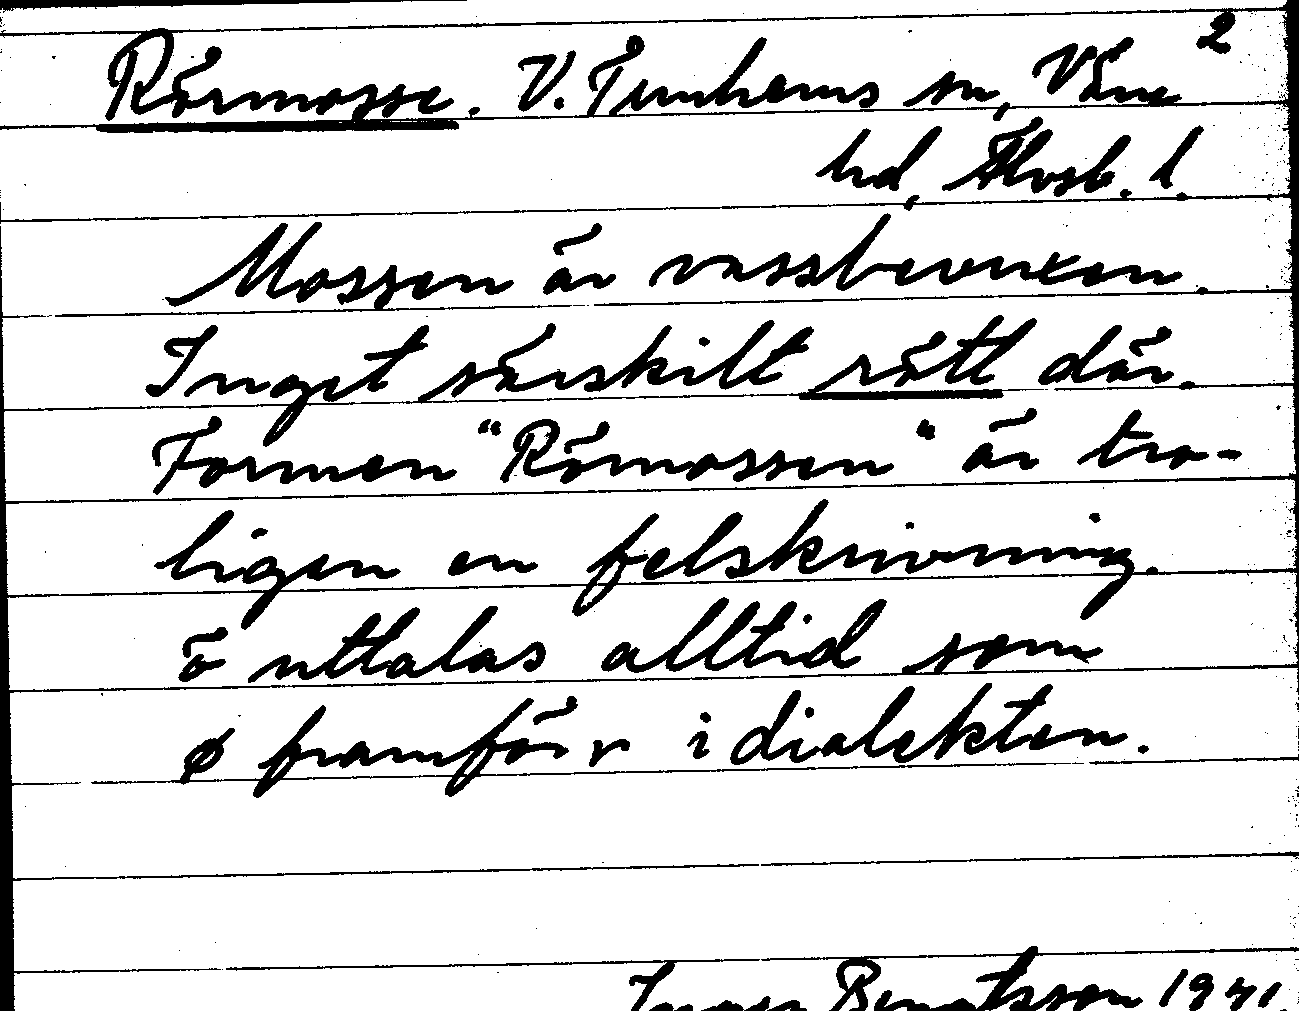 2
Rörmosse. V. Tunhems sn, Väne
hd, Älvsb. l.
Mossen är vassbevuxen.
Inget särskilt rött där.
Formen "Römossen" är tro-
ligen en felskrivning.
ö uttalas alltid som
ø framför r i dialekten.
Bengtsson 1971